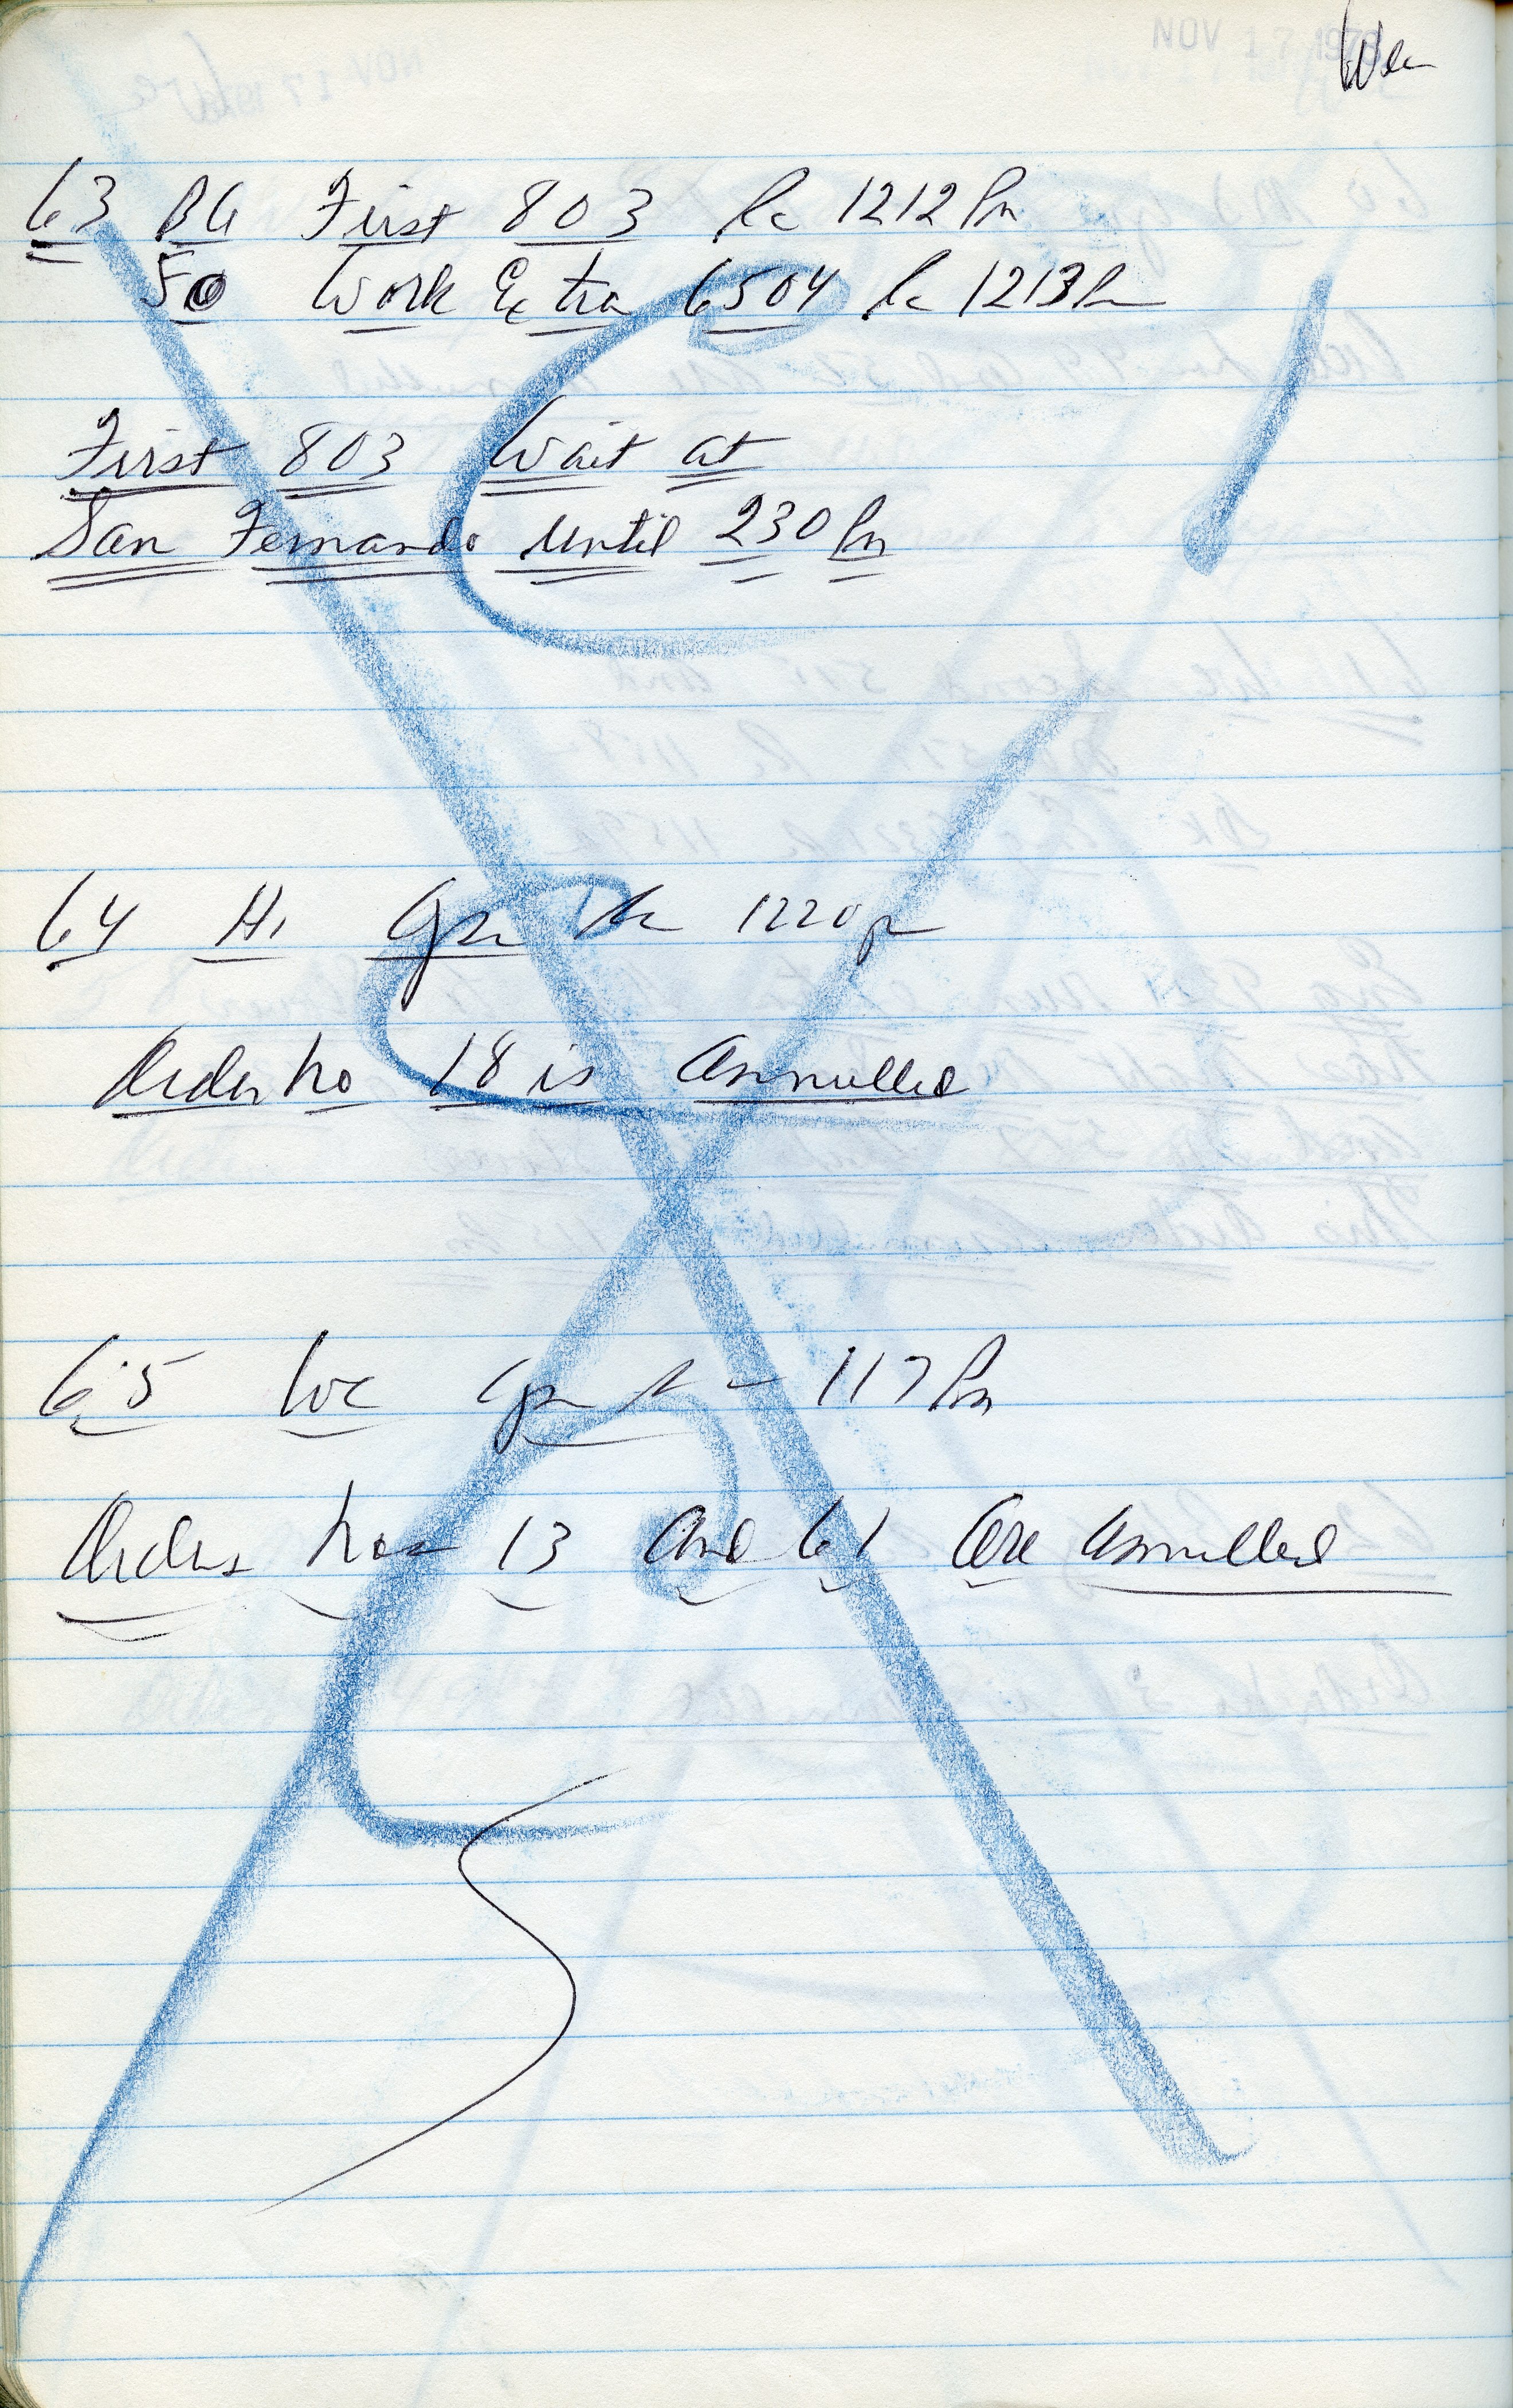 NOV 17 197
63 BG First 803 Rc 1212 Pm
50 Work Extra 6504 Rc 1213 Pm
First 803 Wait at
San Fernando Until 230 Pm
64 Hi Rc 1220 pm
Order No 18 is Annulled
65 117 Pm
Orders Nos 13 And 61 Are Annulled